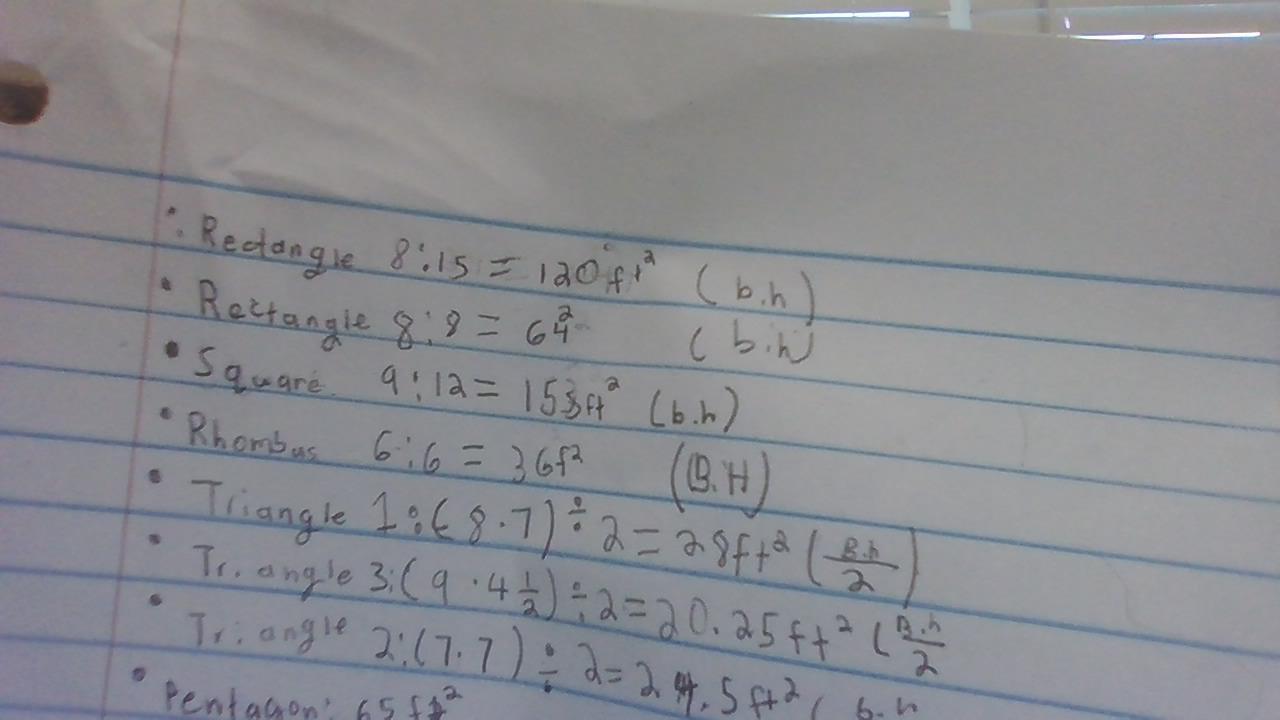 Rectangle 8:15 = 120ft² (b.h)
Rectangle 8:8 = 64² (b.h)
Square 9:12 = 153ft² (b.h)
Rhombus 6:6 = 36f² (B.H)
Triangle 1:(8.7) ÷ 2 = 28ft² (B.h/2)
Triangle 3:(9 . 4 1/2) ÷ 2 = 20.25ft² (B.h/2
Triangle 2:(7.7) ÷ 2 = 24.5ft² ( b.h
Pentagon: 65ft²